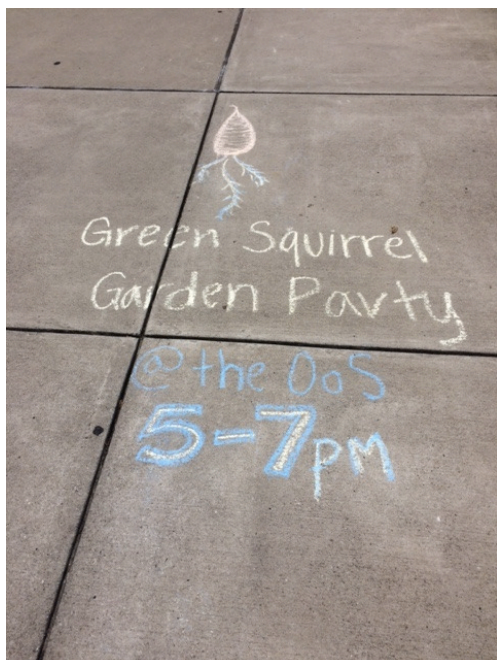 Green Squirrel
Garden Party
@ the OoS
5-7pm